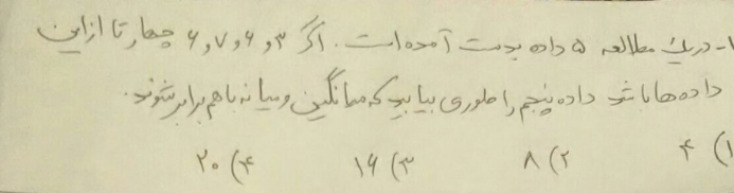 ۱- در یک مطالعه ۵ داده بدست آمده است. اگر ۳ و ۶ و ۷ و ۶ چهار تا از این
داده ها باشد داده پنجم را طوری بیابید که میانگین و میانه باهم برابر شوند.
۱) ۴ ۲) ۸ ۳) ۱۶ ۴) ۲۰